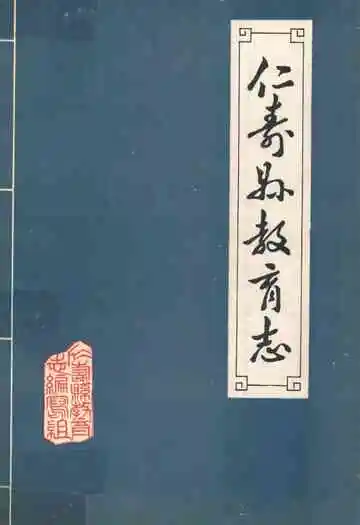 仁寿县教育志
仁寿县教育
志编写组